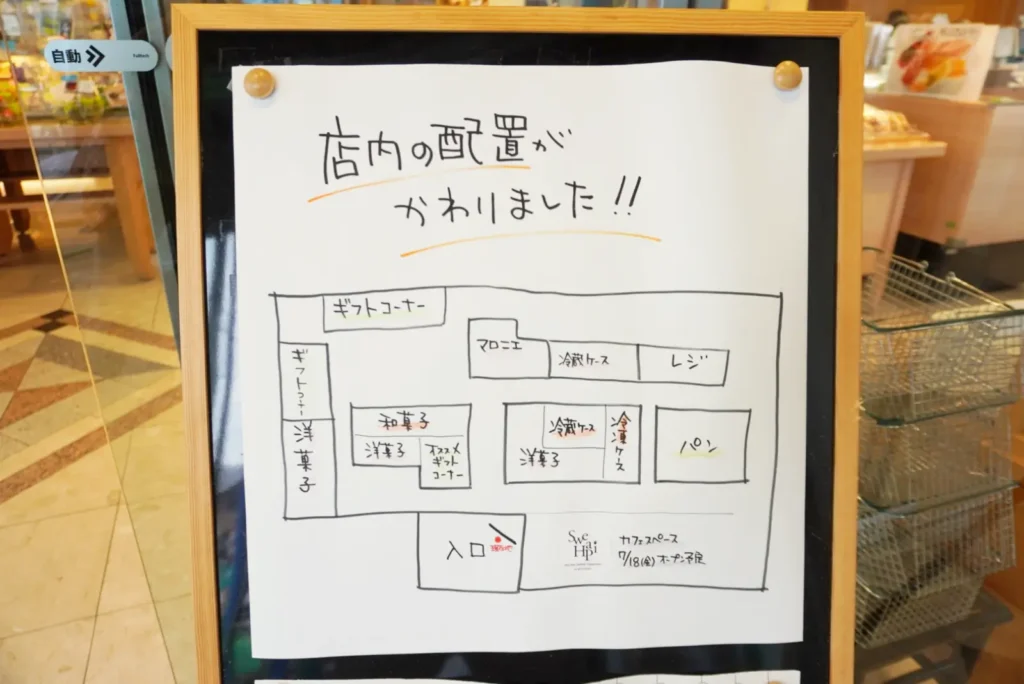 自動
店内の配置が
かわりました!!
ギフトコーナー
マロニエ
冷蔵ケース
レジ
ギフトコーナー
洋菓子
和菓子
洋菓子
オススメ
ギフト
コーナー
冷蔵ケース
洋菓子
冷凍ケース
パン
入口
現在地
Swe
Hapi
カフェスペース
7/18(金)オープン予定